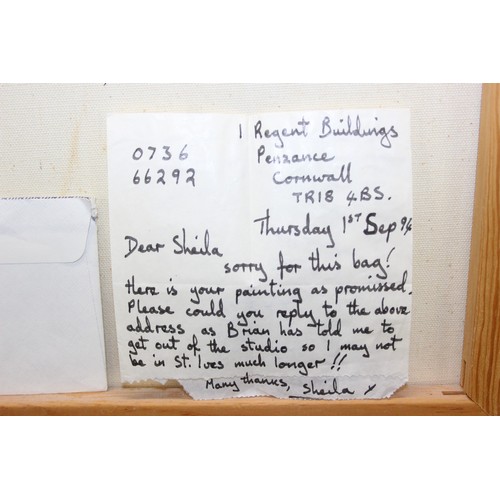 1 Regent Buildings
0736 Penzance
66292 Cornwall
TR18 4BS.
Thursday 1ST Sep 94
Dear Sheila
sorry for this bag!
Here is your painting as promissed.
Please could you reply to the above
address as Brian has told me to
get out of the studio so I may not
be in St. Ives much longer!!
Many thanks, Sheila x